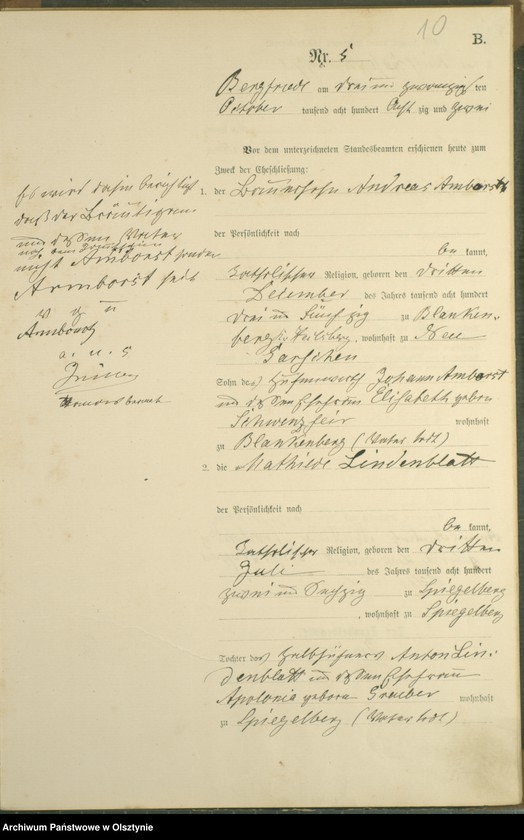 10
B.
Nr. 5
Bergfriede am drei und zwanzig ten
October tausend acht hundert Acht zig und zwei
Vor dem unterzeichneten Standesbeamten erschienen heute zum
Zweck der Eheschließung:
1. der Bauersohn Andreas Amborst
der Persönlichkeit nach
be kannt,
katholischer Religion, geboren den dritten
Dezember des Jahres tausend acht hundert
drei und fünfzig zu Blanken-
berg Heilsberg, wohnhaft zu Neu
Garschen
Sohn des Johann Amborst
und dessen Ehefrau Elisabeth geborn
wohnhaft
zu Blankenberg (Vater todt)
2. die Mathilde Lindenblatt
der Persönlichkeit nach
be kannt,
katholischer Religion, geboren den dritten
Juli des Jahres tausend acht hundert
zwei und Sechzig zu Spiegelberg
, wohnhaft zu Spiegelberg
Tochter des Halbhüfners Anton Lin-
denblatt und dessen Ehefrau
Apolonia geborn wohnhaft
zu Spiegelberg (Vater todt)
Es wird dahin berichtigt
daß der Bräutigam
und dessen Vater
nicht Amborst sondern
Armborst heißt
v g u
Armborst
Standesbeamte
Archiwum Państwowe w Olsztynie